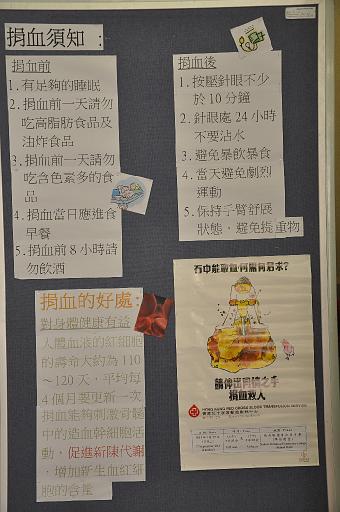 捐血須知：
捐血前
1. 有足夠的睡眠
2. 捐血前一天請勿
吃高脂肪食品及
油炸食品
3. 捐血前一天請勿
吃含色素多的食
品
4. 捐血當日應進食
早餐
5. 捐血前 8 小時請
勿飲酒
捐血後
1. 按壓針眼不少
於 10 分鐘
2. 針眼處 24 小時
不要沾水
3. 避免暴飲暴食
4. 當天避免劇烈
運動
5. 保持手臂舒展
狀態，避免提重物
捐血的好處：
對身體健康有益
人體血液的紅細胞
的壽命大約為 110
～120 天，平均每
4 個月要更新一次
捐血能夠刺激骨髓
中的造血幹細胞活
動，促進新陳代謝，
增加新生血紅細
胞的含量
石中能敲血何需有君求？
請伸出同情之手
捐血救人
HONG KONG RED CROSS BLOOD TRANSFUSION SERVICE
香港紅十字會輸血服務中心